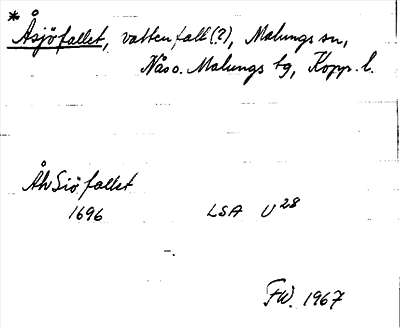 * Åsjöfallet, vattenfall (?), Malungs sn,
Nås o. Malungs tg, Kopp. l.
Åh Siö fallet
1696 LSA U 28
FW. 1967